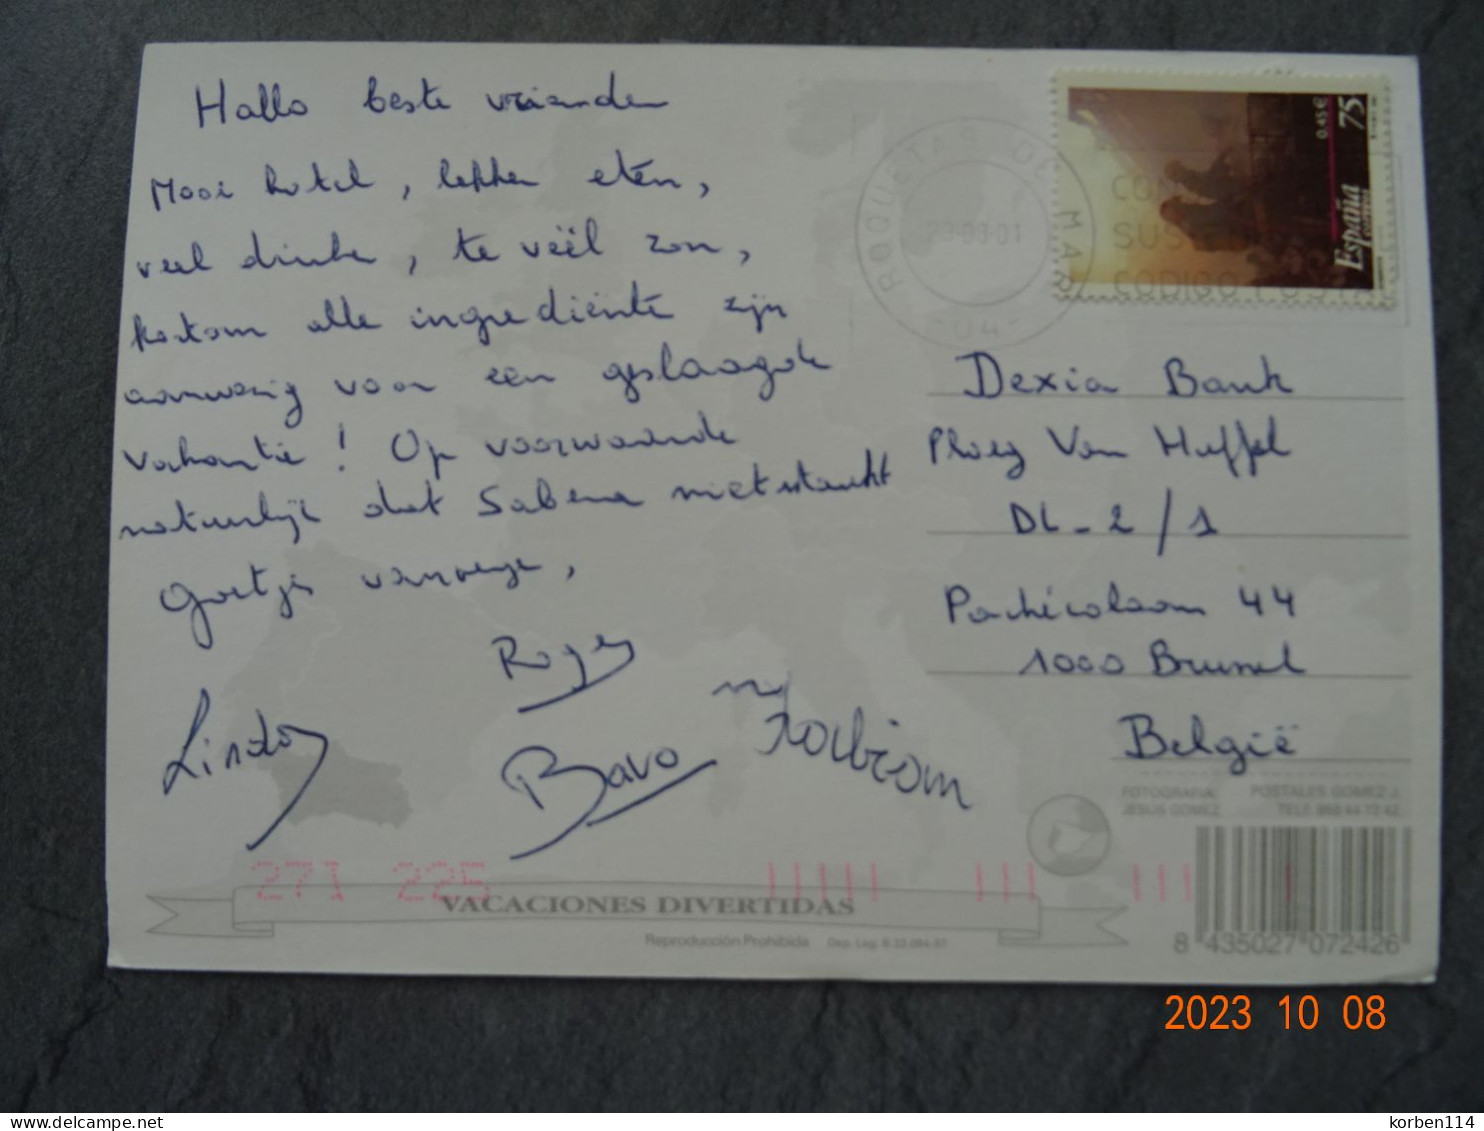 Hallo beste vrienden
Mooi hotel, lekker eten,
veel drinke, te veël zon,
kortom alle ingrediënte zijn
aanwezig voor een geslaagde
vakantie! Op voorwaarde
natuurlijk dat Sabena niet staakt
Groetjes vanwege,
Roger
Linda
Bavo
ROQUETAS DE MAR
-03-01
-04-
CODIGO
0.45€ 75
España
CORREOS
Dexia Bank
Ploeg Van Huffel
DL-2/1
Pachecolaan 44
1000 Brussel
België
FOTOGRAFIA:
JESUS GOMEZ
POSTALES GOMEZ J.
TELF. 968 44 72 42
271 225
VACACIONES DIVERTIDAS
Reproducción Prohibida Dep. Leg. B 23.094-97
8 435027 072426
2023 10 08
korben114